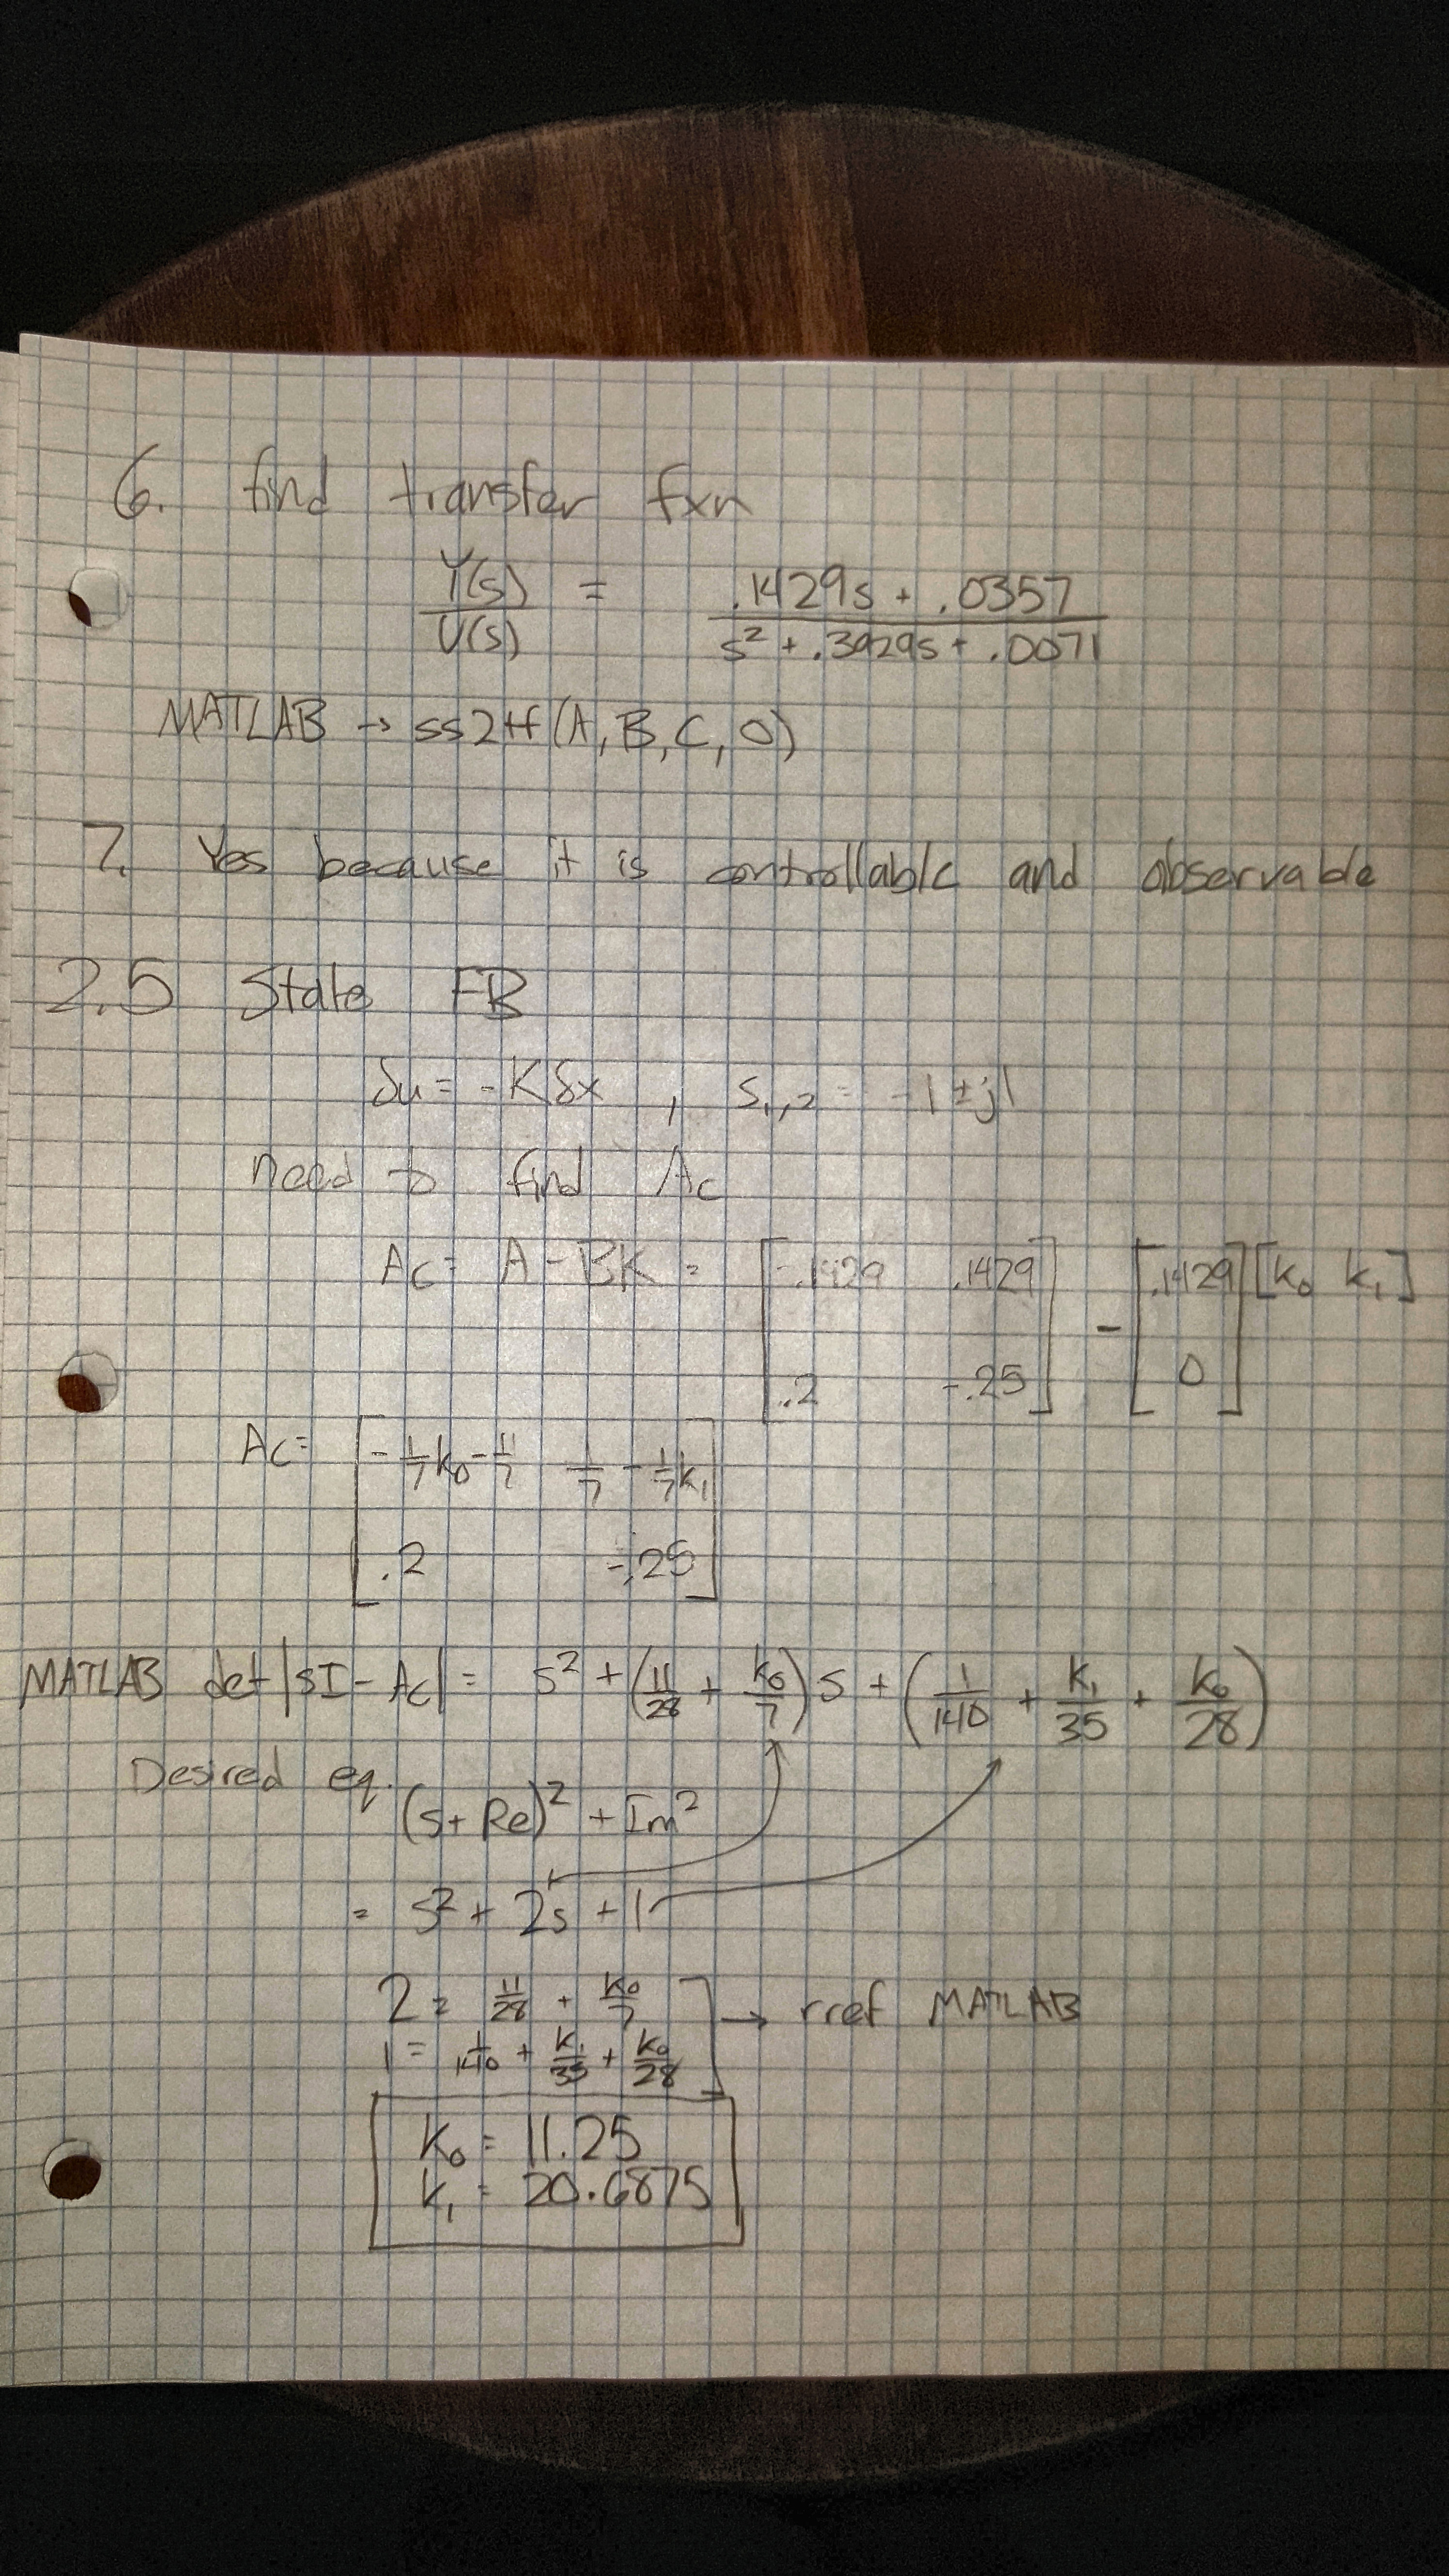 6. find transfer fxn
Y(s)/U(s) = (.1429s + .0357)/(s² + .3929s + .0071)
MATLAB → ss2tf(A,B,C,0)
7. Yes because it is controllable and observable
2.5 State FB
δu = -Kδx , s₁,₂ = -1±j1
need to find Ac
Ac = A - BK = [-.1429 .1429; .2 -.25] - [.1429; 0][k₀ k₁]
Ac = [-1/7k₀-1/7 1/7-1/7k₁; .2 -.25]
MATLAB det|sI-Ac| = s² + (11/28 + k₀/7)s + (1/140 + k₁/35 + k₀/28)
Desired eq. (s+Re)² + Im²
= s² + 2s + 1
2 = 11/28 + k₀/7
1 = 1/140 + k₁/35 + k₀/28 ] → rref MATLAB
k₀ = 11.25
k₁ = 20.6875